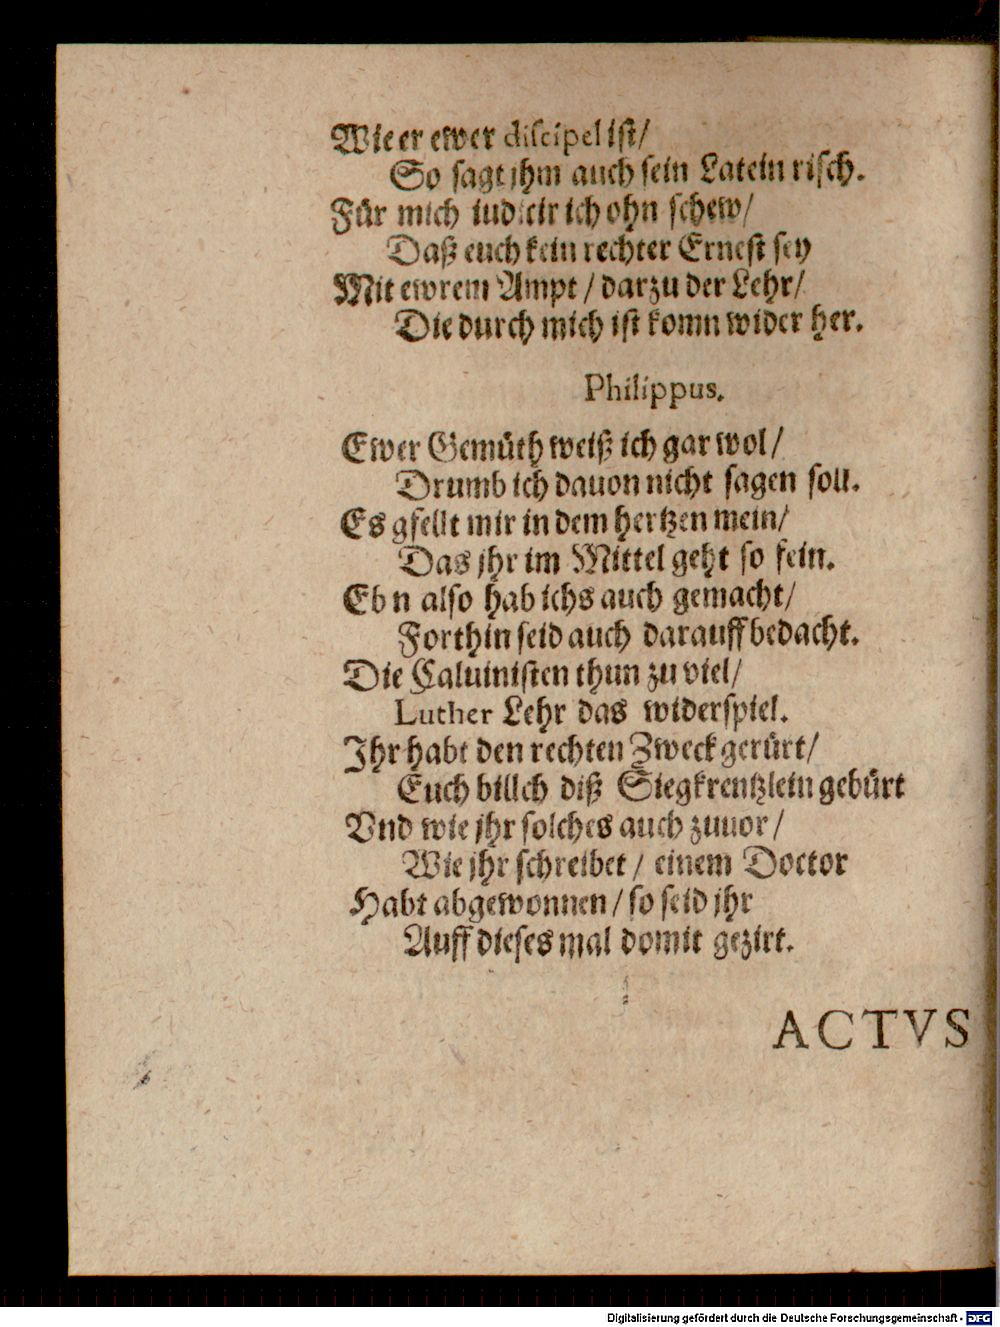 Wie er ewer discipel ist/
So sagt jhm auch sein Latein risch.
Für mich iudicir ich ohn schew/
Daß euch kein rechter Ernest sey
Mit ewrem Ampt / darzu der Lehr/
Die durch mich ist komn wider her.
Philippus.
Ewer Gemüth weiß ich gar wol/
Drumb ich dauon nicht sagen soll.
Es gfellt mir in dem hertzen mein/
Das jhr im Mittel geht so fein.
Eb n also hab ichs auch gemacht/
Forthin seid auch darauff bedacht.
Die Caluinisten thun zu viel/
Luther Lehr das widerspiel.
Ihr habt den rechten Zweck gerürt/
Euch billch diß Siegkrentzlein gebürt
Vnd wie jhr solches auch zuuor/
Wie jhr schreibet / einem Doctor
Habt abgewonnen / so seid jhr
Auff dieses mal domit gezirt.
ACTVS
Digitalisierung gefördert durch die Deutsche Forschungsgemeinschaft - DFG